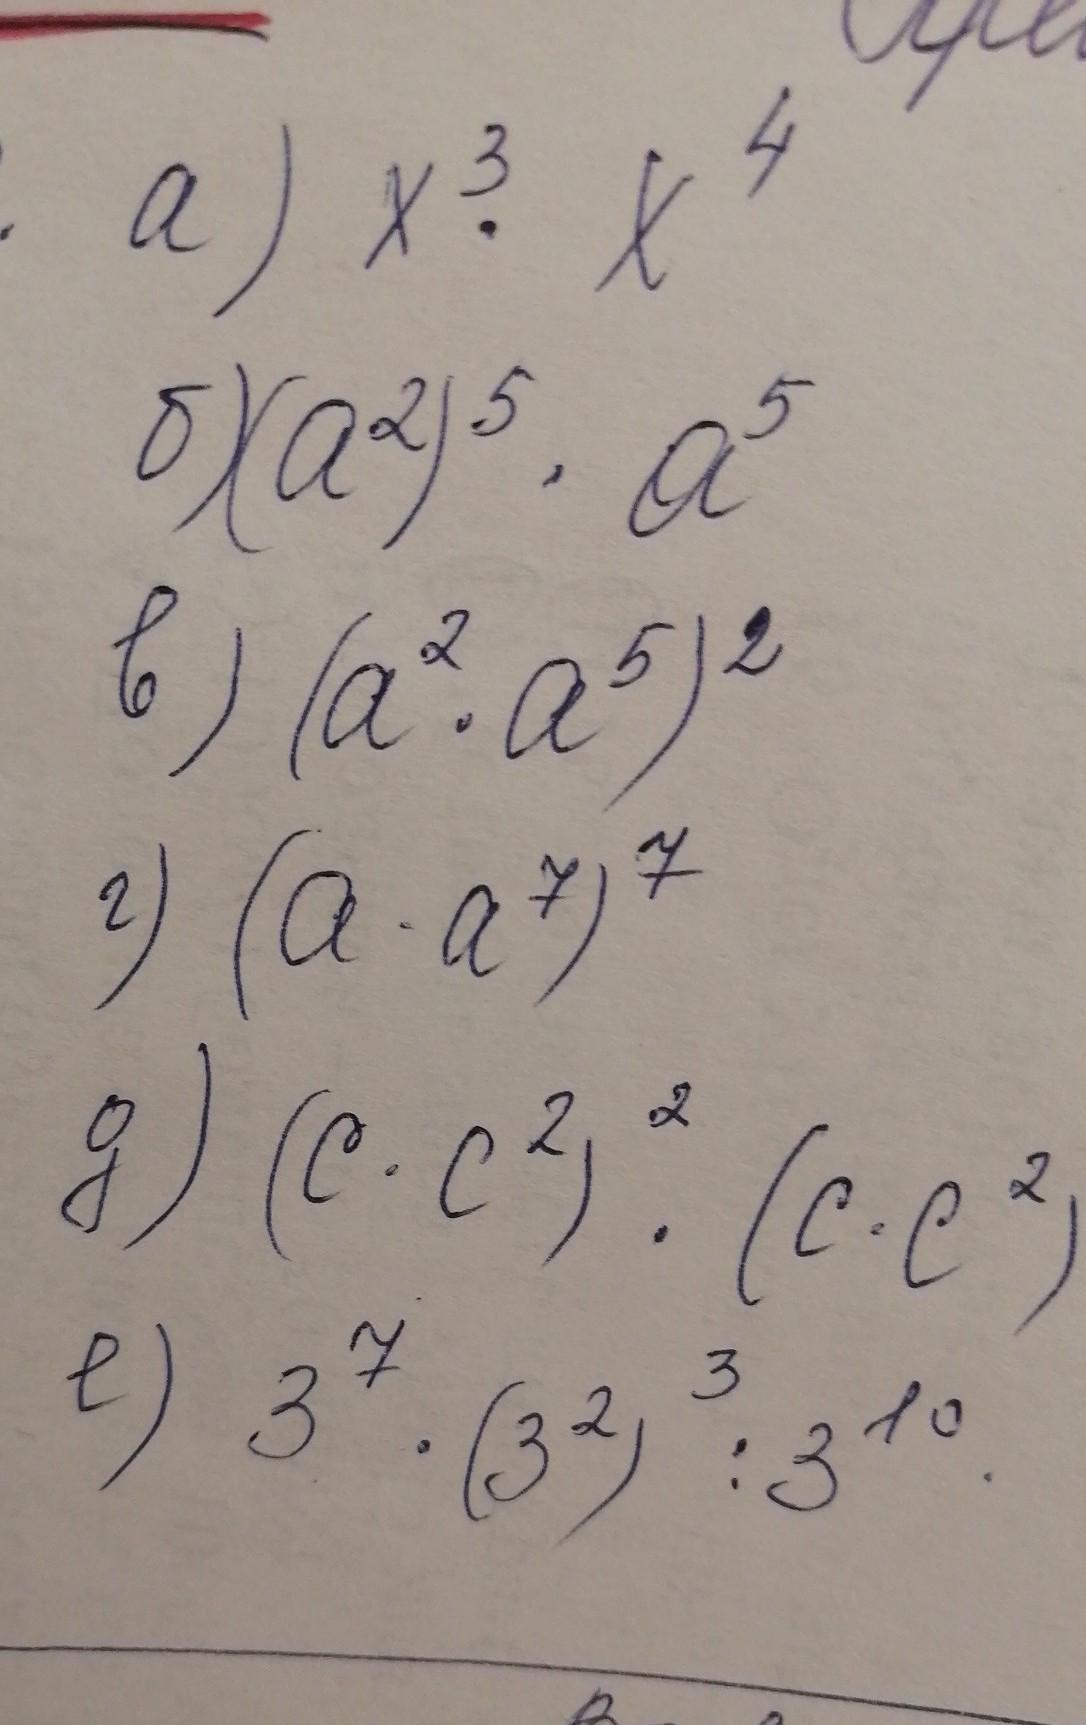 а) x³ · x⁴
б) (a²)⁵ · a⁵
в) (a² · a⁵)²
г) (a · a⁷)⁷
д) (c · c²)² · (c · c²)
е) 3⁷ · (3²)³ : 3¹⁰.